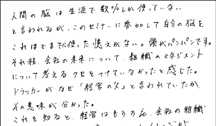 人間の脳は生涯で数%しか使っていない
と言われるが、このセミナーに参加して自分の脳を
これほどまでに使った憶えがない。頭がパンパンです。
それ程、会社の未来について、組織のマネジメント
について考えるクセをつけていなかったと感じた。
ドラッカーがなぜ「経営の父」と言われていたか、
その意味が分かった。
これを知ると、経営はもちろん、会社の組織